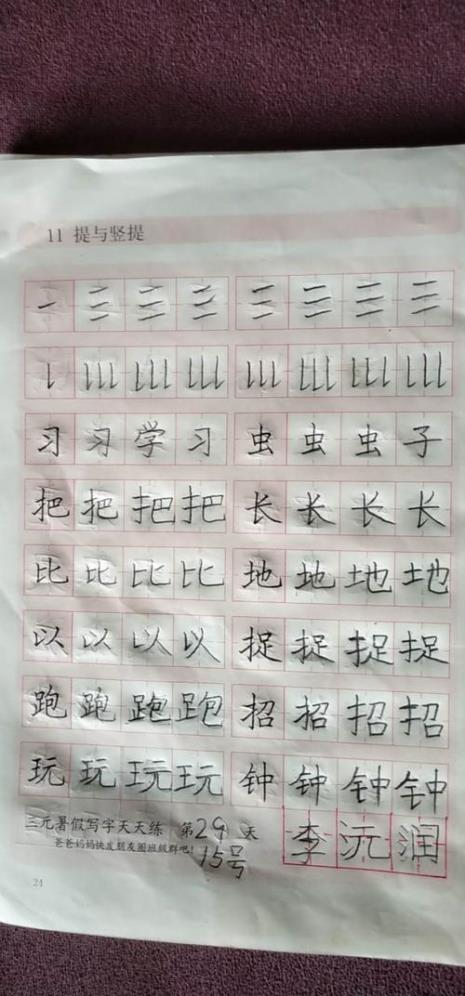 11 提与竖提
习 习 学 习 虫 虫 虫 子
把 把 把 把 长 长 长 长
比 比 比 比 地 地 地 地
以 以 以 以 捉 捉 捉 捉
跑 跑 跑 跑 招 招 招 招
玩 玩 玩 玩 钟 钟 钟 钟
三元暑假写字天天练 第29天 李沅润
爸爸妈妈快发朋友圈班级群吧! 15号
24